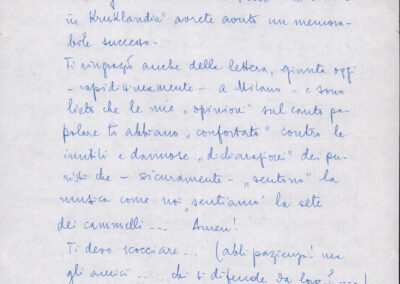 in Kruklandia" avrete avuto un memora-
bile successo.
Ti ringrazio anche della lettera, giunta oggi
- rapidissimamente - a Milano - e sono
lieto che le mie „opinioni" sul canto po-
polare ti abbiano „confortato" contro le
inutili e dannose dei pu-
risti che - sicuramente - „sentono" la
musica come noi „sentiamo" la sete
dei cammelli.... Amen!
Ti devo scocciare... (abbi pazienza! ma
gli amici .... chi ti difende da loro?